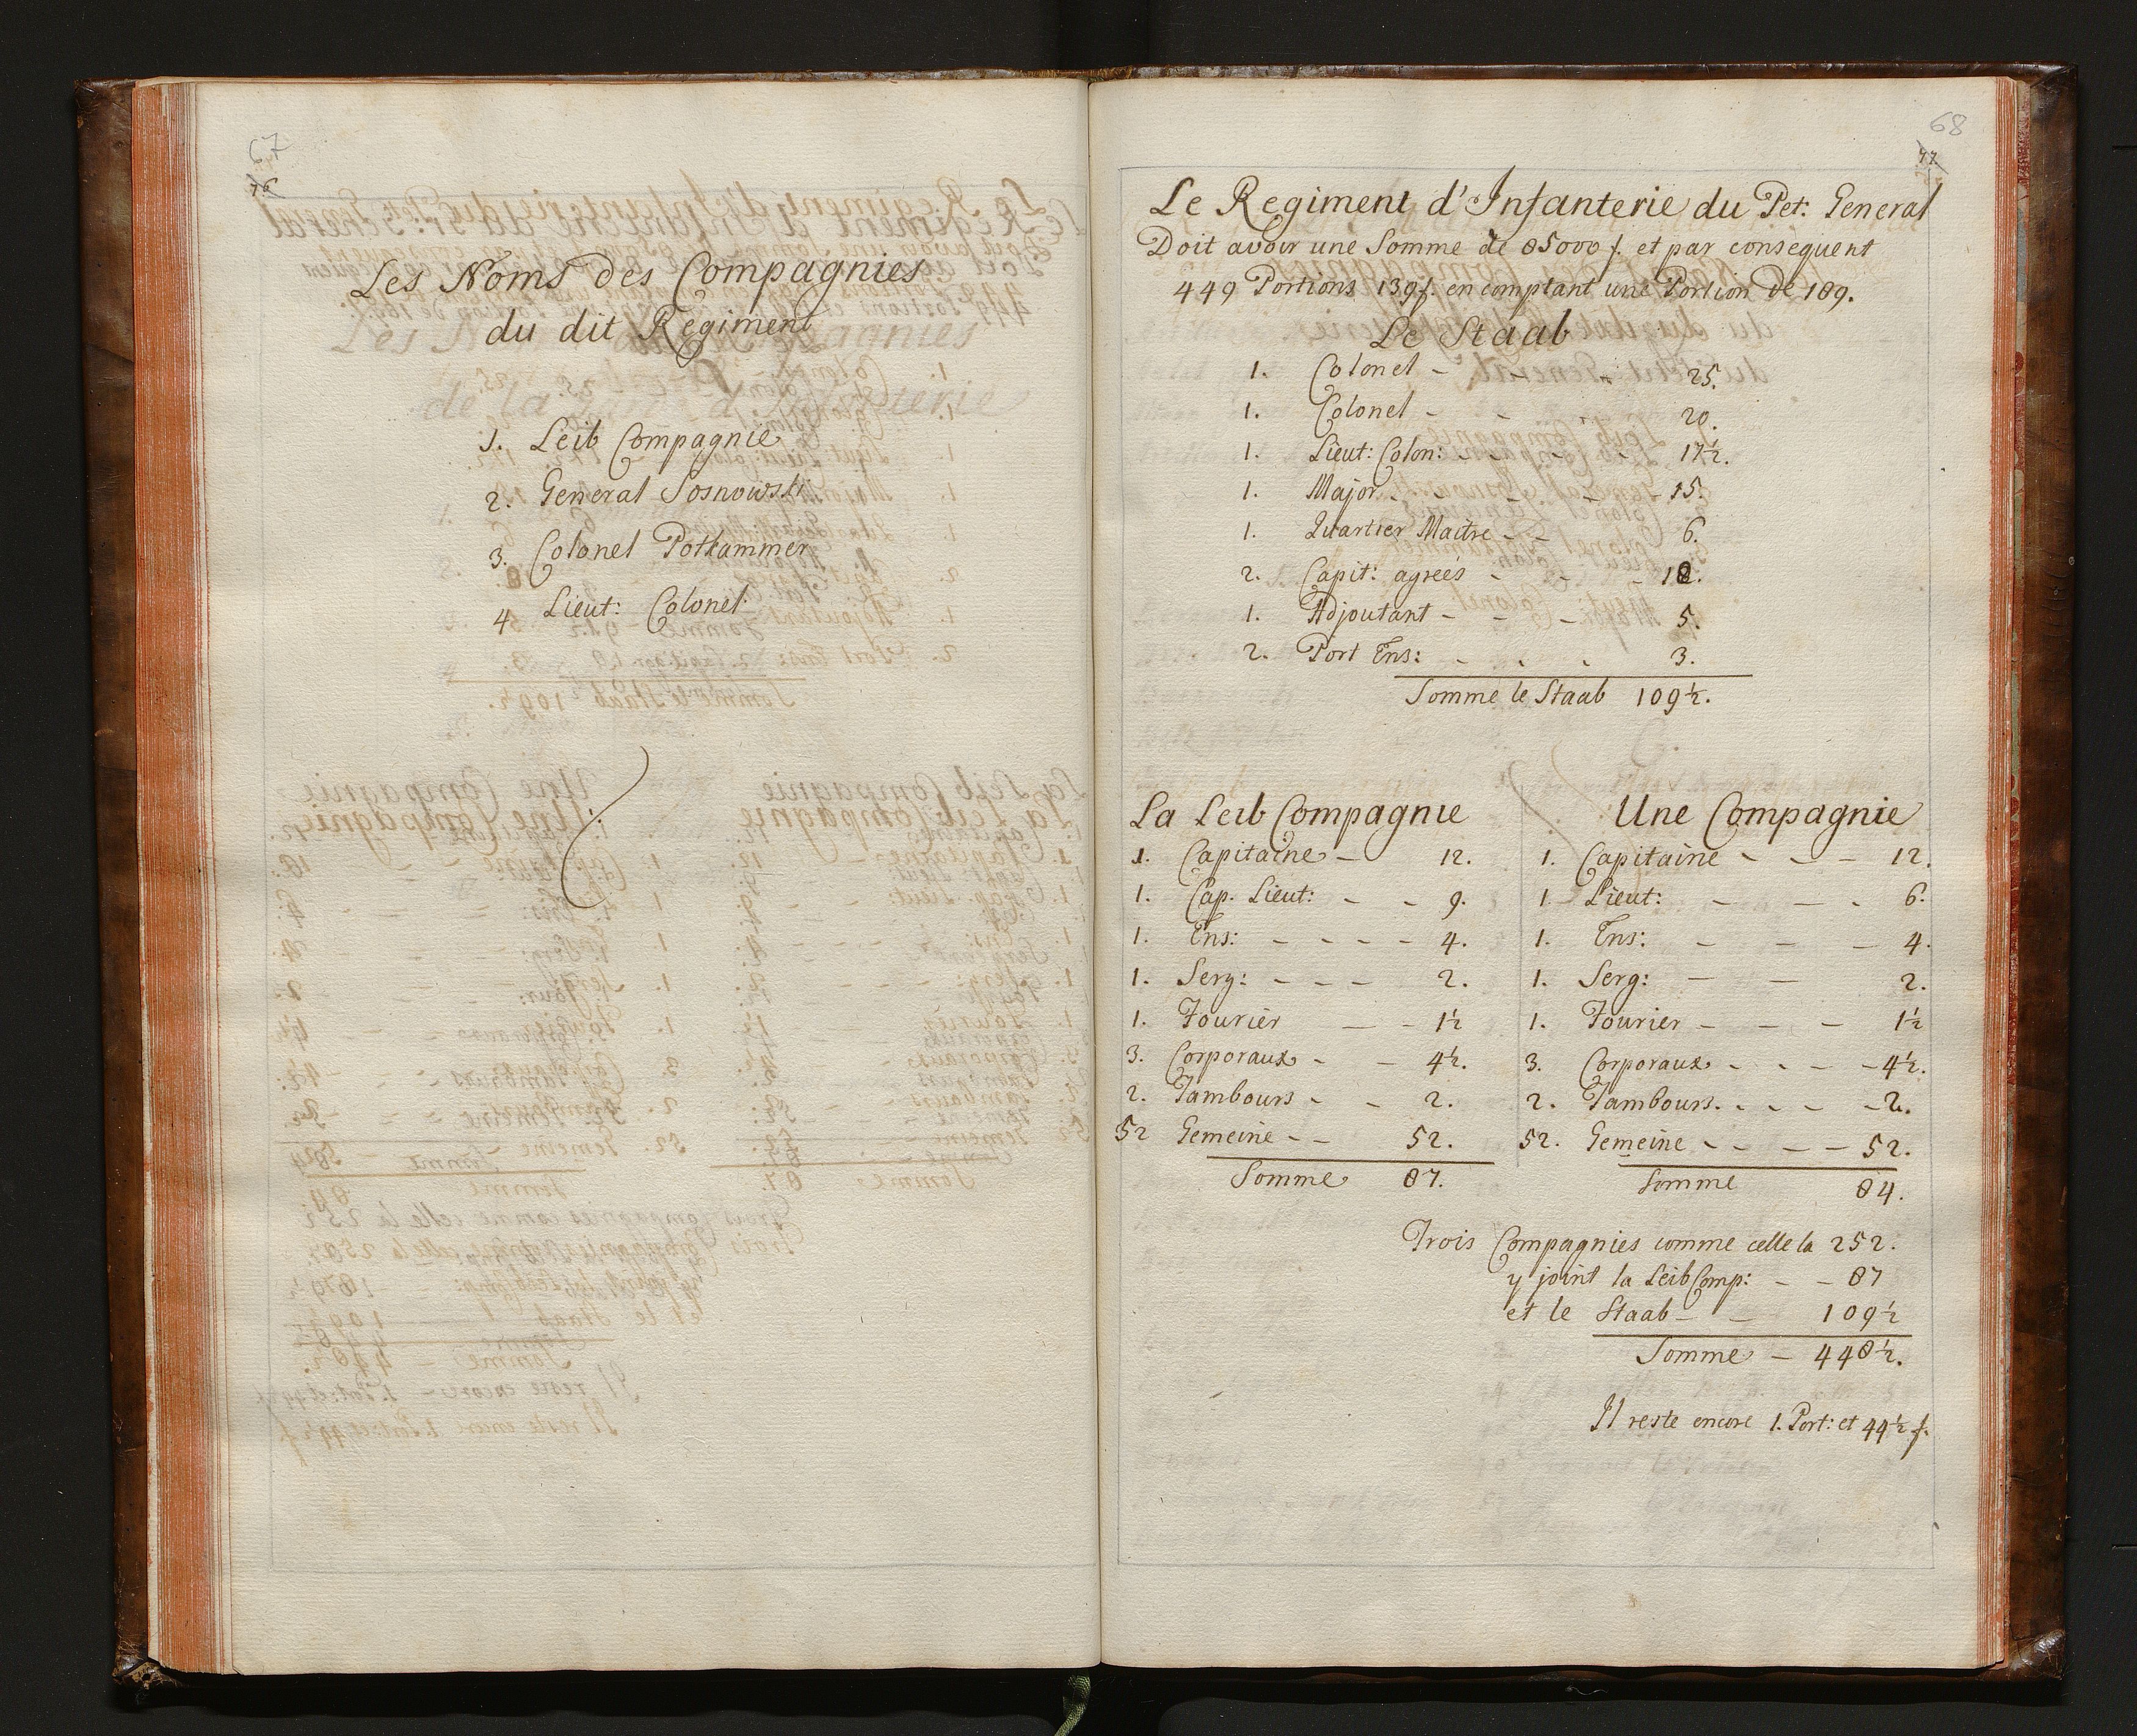 67
76
Les Noms des Compagnies
du dit Regiment
1. Leib Compagnie
2. General Sosnowski
3. Colonel Potkammer
4 Lieut: Colonel
68
77
Le Regiment d'Infanterie du Pet: General
Doit avoir une Somme de 85000 f. et par conséquent
449 Portions 139 f. en comptant une Portion de 189.
Le Staab
1. Colonel - - - 25.
1. Colonel - - - 20.
1. Lieut: Colon: - - - - 17½.
1. Major - - - - 15.
1. Quartier Maitre - - 6.
2. Capit: agreés - - - 18.
1. Adjoutant - - - 5.
2. Port Ens: - - - 3.
Somme le Staab 109½.
La Leib Compagnie
1. Capitaine - 12.
1. Cap. Lieut: - - 9.
1. Ens: - - - - 4.
1. Serg: - - - 2.
1. Fourier - - 1½
3. Corporaux - - 4½.
2. Tambours - - 2.
52 Gemeine - - 52.
Somme 87.
Une Compagnie
1. Capitaine - - - 12.
1. Lieut: - - - 6.
1. Ens: - - - 4.
1. Serg: - - 2.
1. Fourier - - - 1½
3. Corporaux - - - - 4½.
2. Tambours. - - - - 2.
52. Gemeine - - - - 52.
Somme 84.
Trois Compagnies comme celle la 252.
y joint la Leib Comp: - - 87
et le Staab - - 109½
Somme - 448½.
Il reste encore 1. Port: et 44½ f.